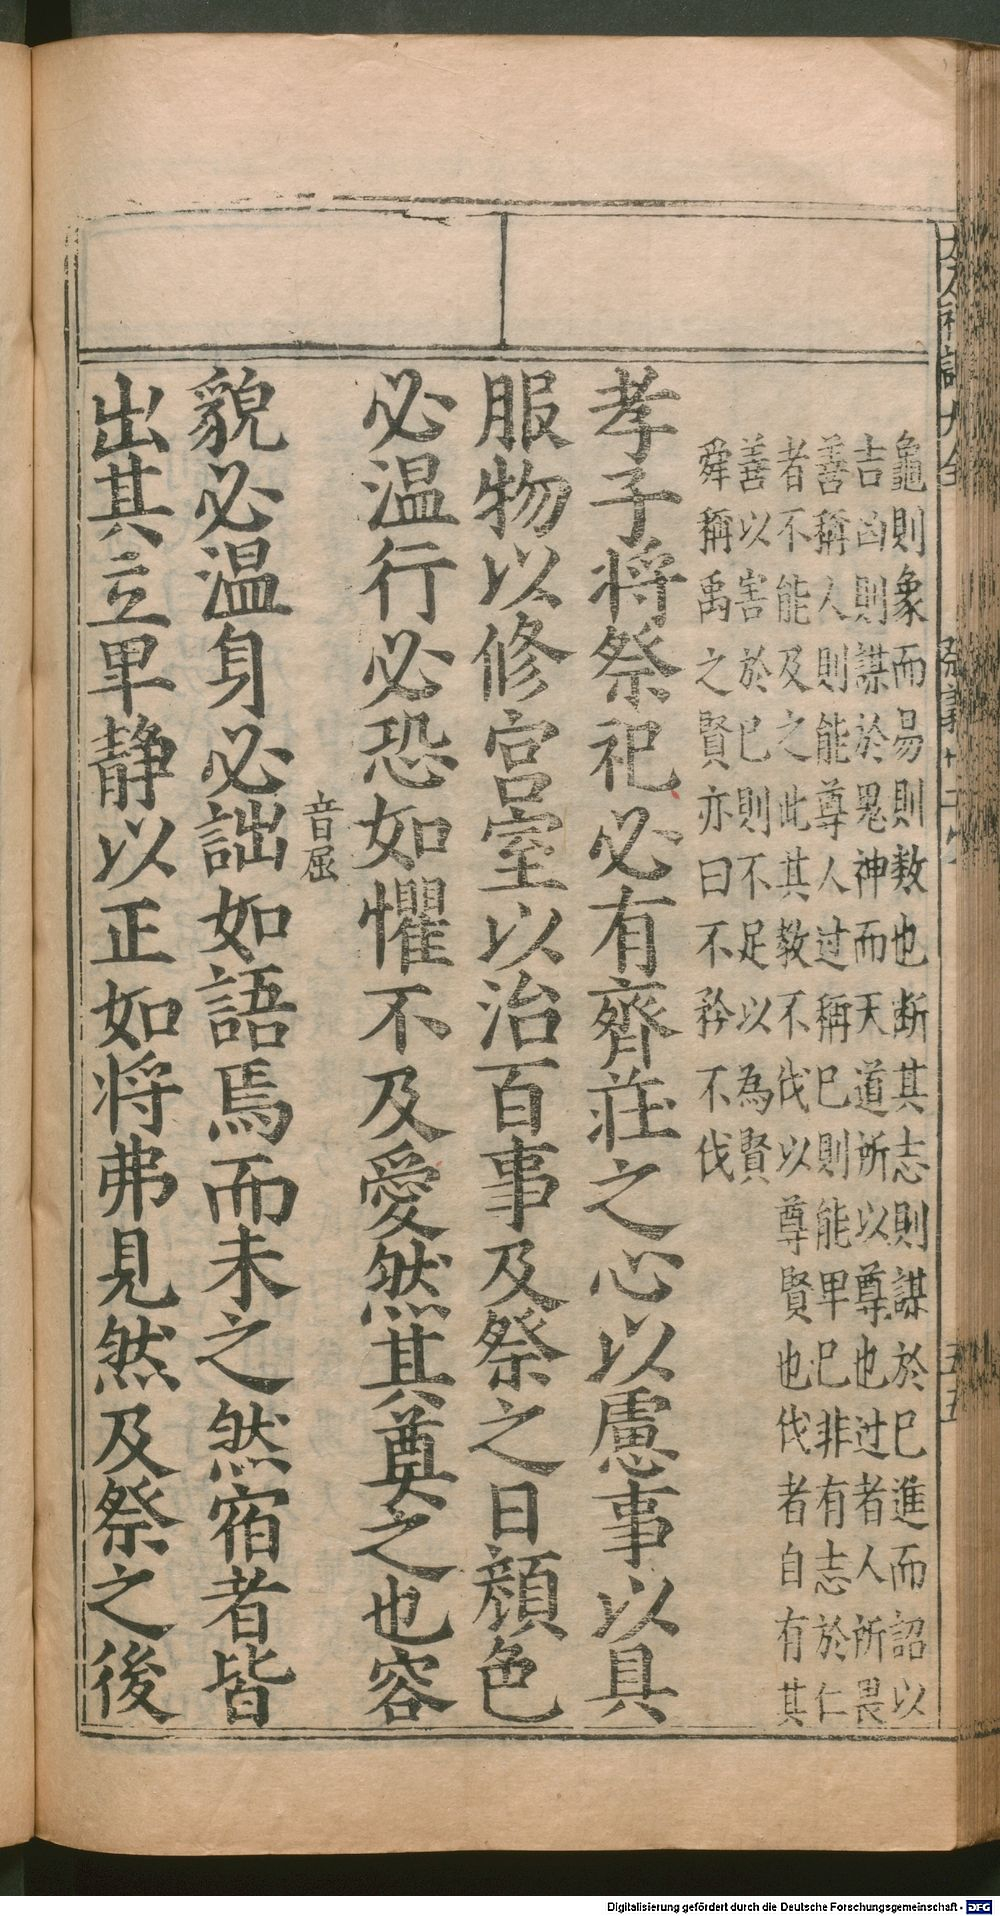 龜則象而昜則敎也断其志則謀於已進而詔以
吉凶則謀於䰟神而天道所以尊也过者人所畏
善稱人則能尊人过稱巳則能卑巳非有志於仁
者不能及之此其敎不伐以尊賢也伐者自有其
善以害於巳則不足以為賢
舜稱禹之賢亦曰不矜不伐
孝子将祭祀必有齊莊之心以慮事以具
服物以修宫室以治百事及祭之日顔色
必温行必恐如懼不及愛然其奠之也容
音屈
貌必温身必詘如語焉而未之然宿者皆
出其立卑静以正如将弗見然及祭之後
Digitalisierung gefördert durch die Deutsche Forschungsgemeinschaft - DFG